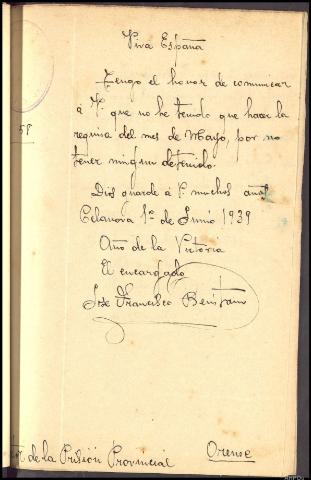 Viva España
Tengo el honor de comunicar
á V. que no he tenido que hacer la
requisa del mes de Mayo, por no
tener ningun detenido.
Dios guarde á V. muchos años
Celanova 1º de Junio 1939
Año de la Victoria
El encargado
José Francisco
58
de la Prisión Provincial Orense